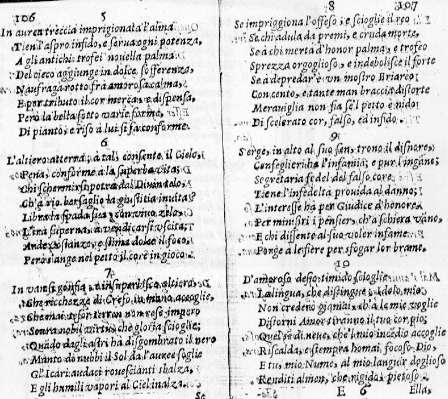 106 5
In aurea treccia imprigionata l'alma
Tien l'aspro infido, e serua ogni potenza,
A gli antichi trofei nouella palma
Del cieco aggiunge in dolce sofferenza,
Naufraga rotto frà amorosa calma,
E per tributo il cor merca, e dispensa,
Però la bella fatto varie forme
Di pianto, e riso à lui si fà conforme.
6
L'altiero atterra, à tal consente il Cielo,
Pena, conforme à la superba vita;
Chi schernir
Ch'à rio bersaglio la giustitia inuita;
Libra la spada sua con viuo zelo,
L'ira superna à vendicarsi vscita,
Andar costanze, e stima dolce il foco,
Però s'ange nel petto il cor è in gioco.
7
In vans si gonfia, e insuperisce altiero
Che ricchezze di Creso in mano accoglie,
impero
Soura nobil che gloria scioglie;
Quado da gli astri hà disgombrato il nero
Manto dè nubbi il Sol da l'auree soglie
Gl'Icari audaci rouescianti sbalza,
E gli humili vapori al Ciel inalza.
Se
8 107
Se impriggiona l'offeso, e scioglie il reo
Se chi adula dà premi, e cruda morte,
Se à chi merta d'honor palma, e trofeo
Sprezza orgoglioso, e indebolisce il forte
Se à depredar è vn mostro Briareo
Con cento, e tante man braccia distorte
Merauiglia non fia se'l petto è nido
Di scelerato cor, falso, ed infido.
9
S'erge, in alto al suo sen, trono il disnore,
Conseglier hà l'infamia; e pur l'ingàno;
Segretaria fè del fel falso core
Tiene l'infedeltà prouida al danno;
L'interesse hà per Giudice d'honore
Per ministri i pensier, ch'à schiera vano,
E chi dissente al suo voler infame
Porge à le fiere per sfogar lor brame.
10
D'amoroso desio timido scioglie
La lingua, che distingue, e l'idolo mio
Non credeuo giamai, ch'à le mie voglie
Distorni Amor tiranno il tuo cor pio;
Quel sè di neue, che l'mio incédio accoglie
Riscalda, e stempra homai, focoso Dio,
E tu, mio Nume, al mio languir doglioso
Renditi almen, che rigida, pietoso.
E 6 Ella,